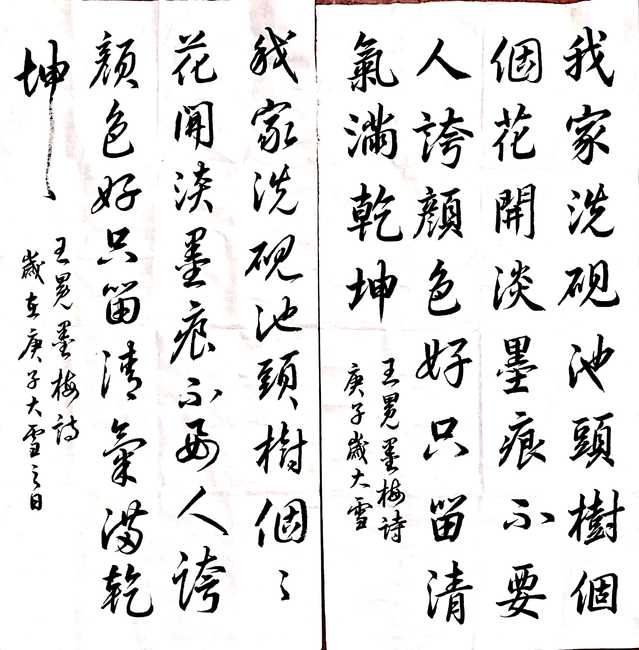 我家洗硯池頭樹個
個花開淡墨痕不要
人誇顏色好只留清
氣滿乾坤
王冕墨梅詩
庚子歲大雪
我家洗硯池頭樹個〻
花開淡墨痕不要人誇
顏色好只留清氣滿乾
坤
王冕墨梅詩
歲在庚子大雪之日